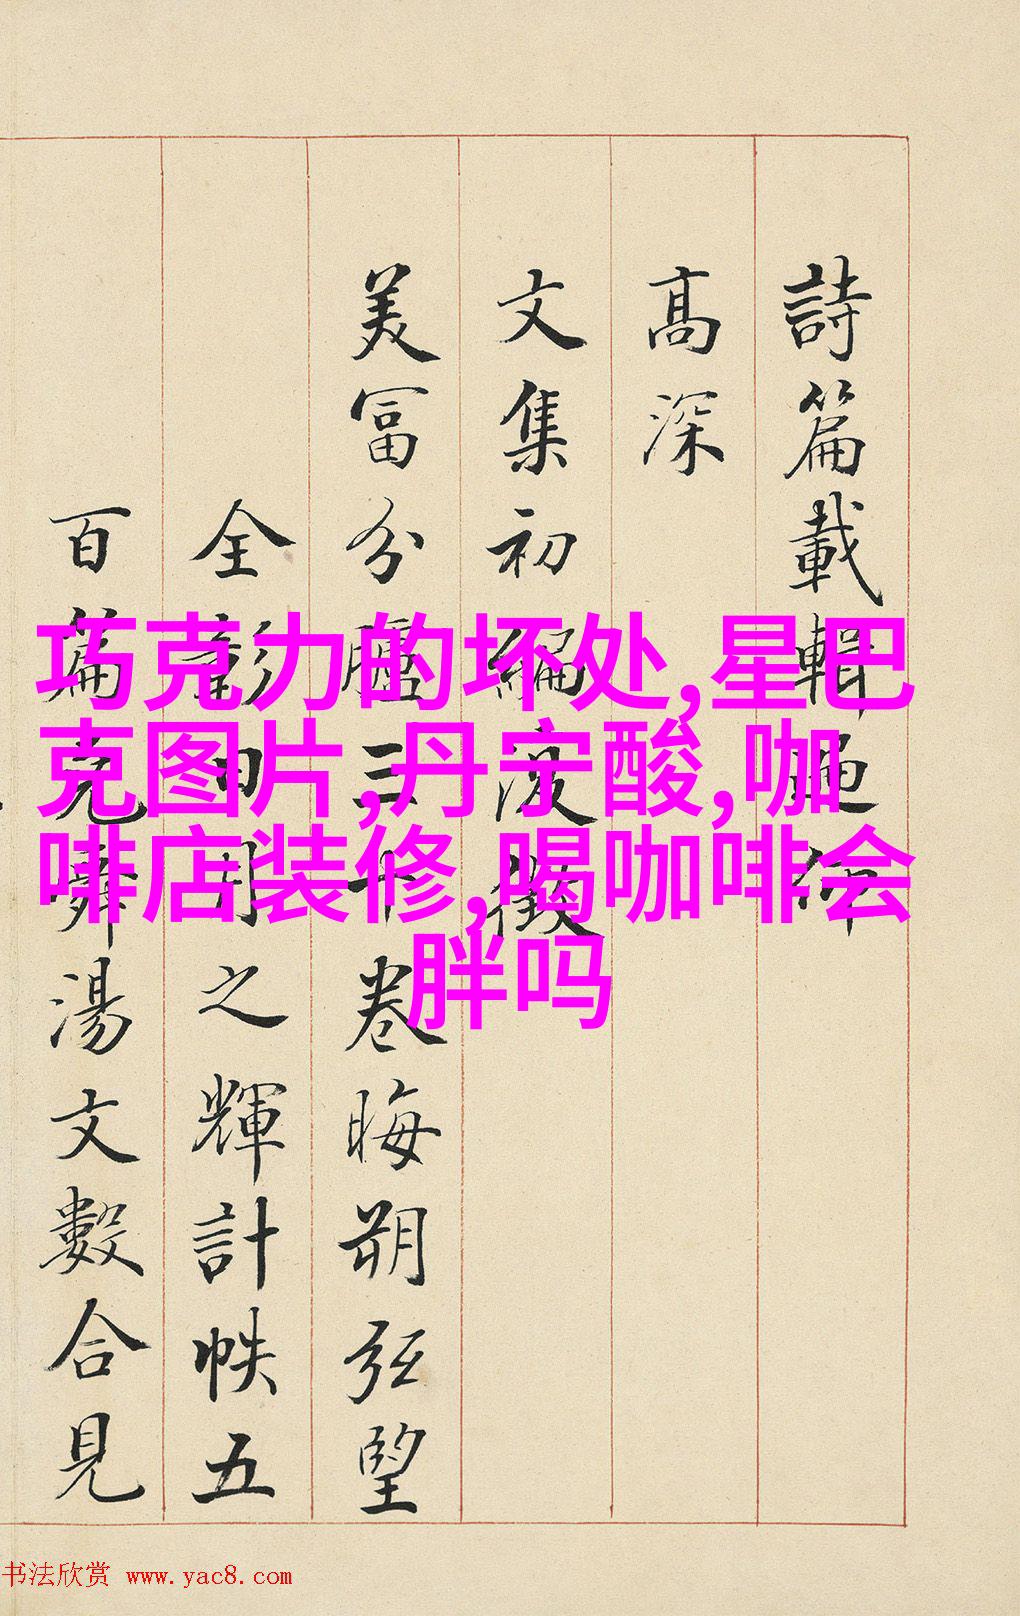 詩篇載輯
高深
文集初編
美富分臚三十卷晦朔弦望
全彰日月之輝計帙五
百篇堯舜湯文數合見
巧克力的坏处,星巴
克图片,丹宁酸,咖
啡店装修,喝咖啡会
胖吗
书法欣赏 www.yac8.com